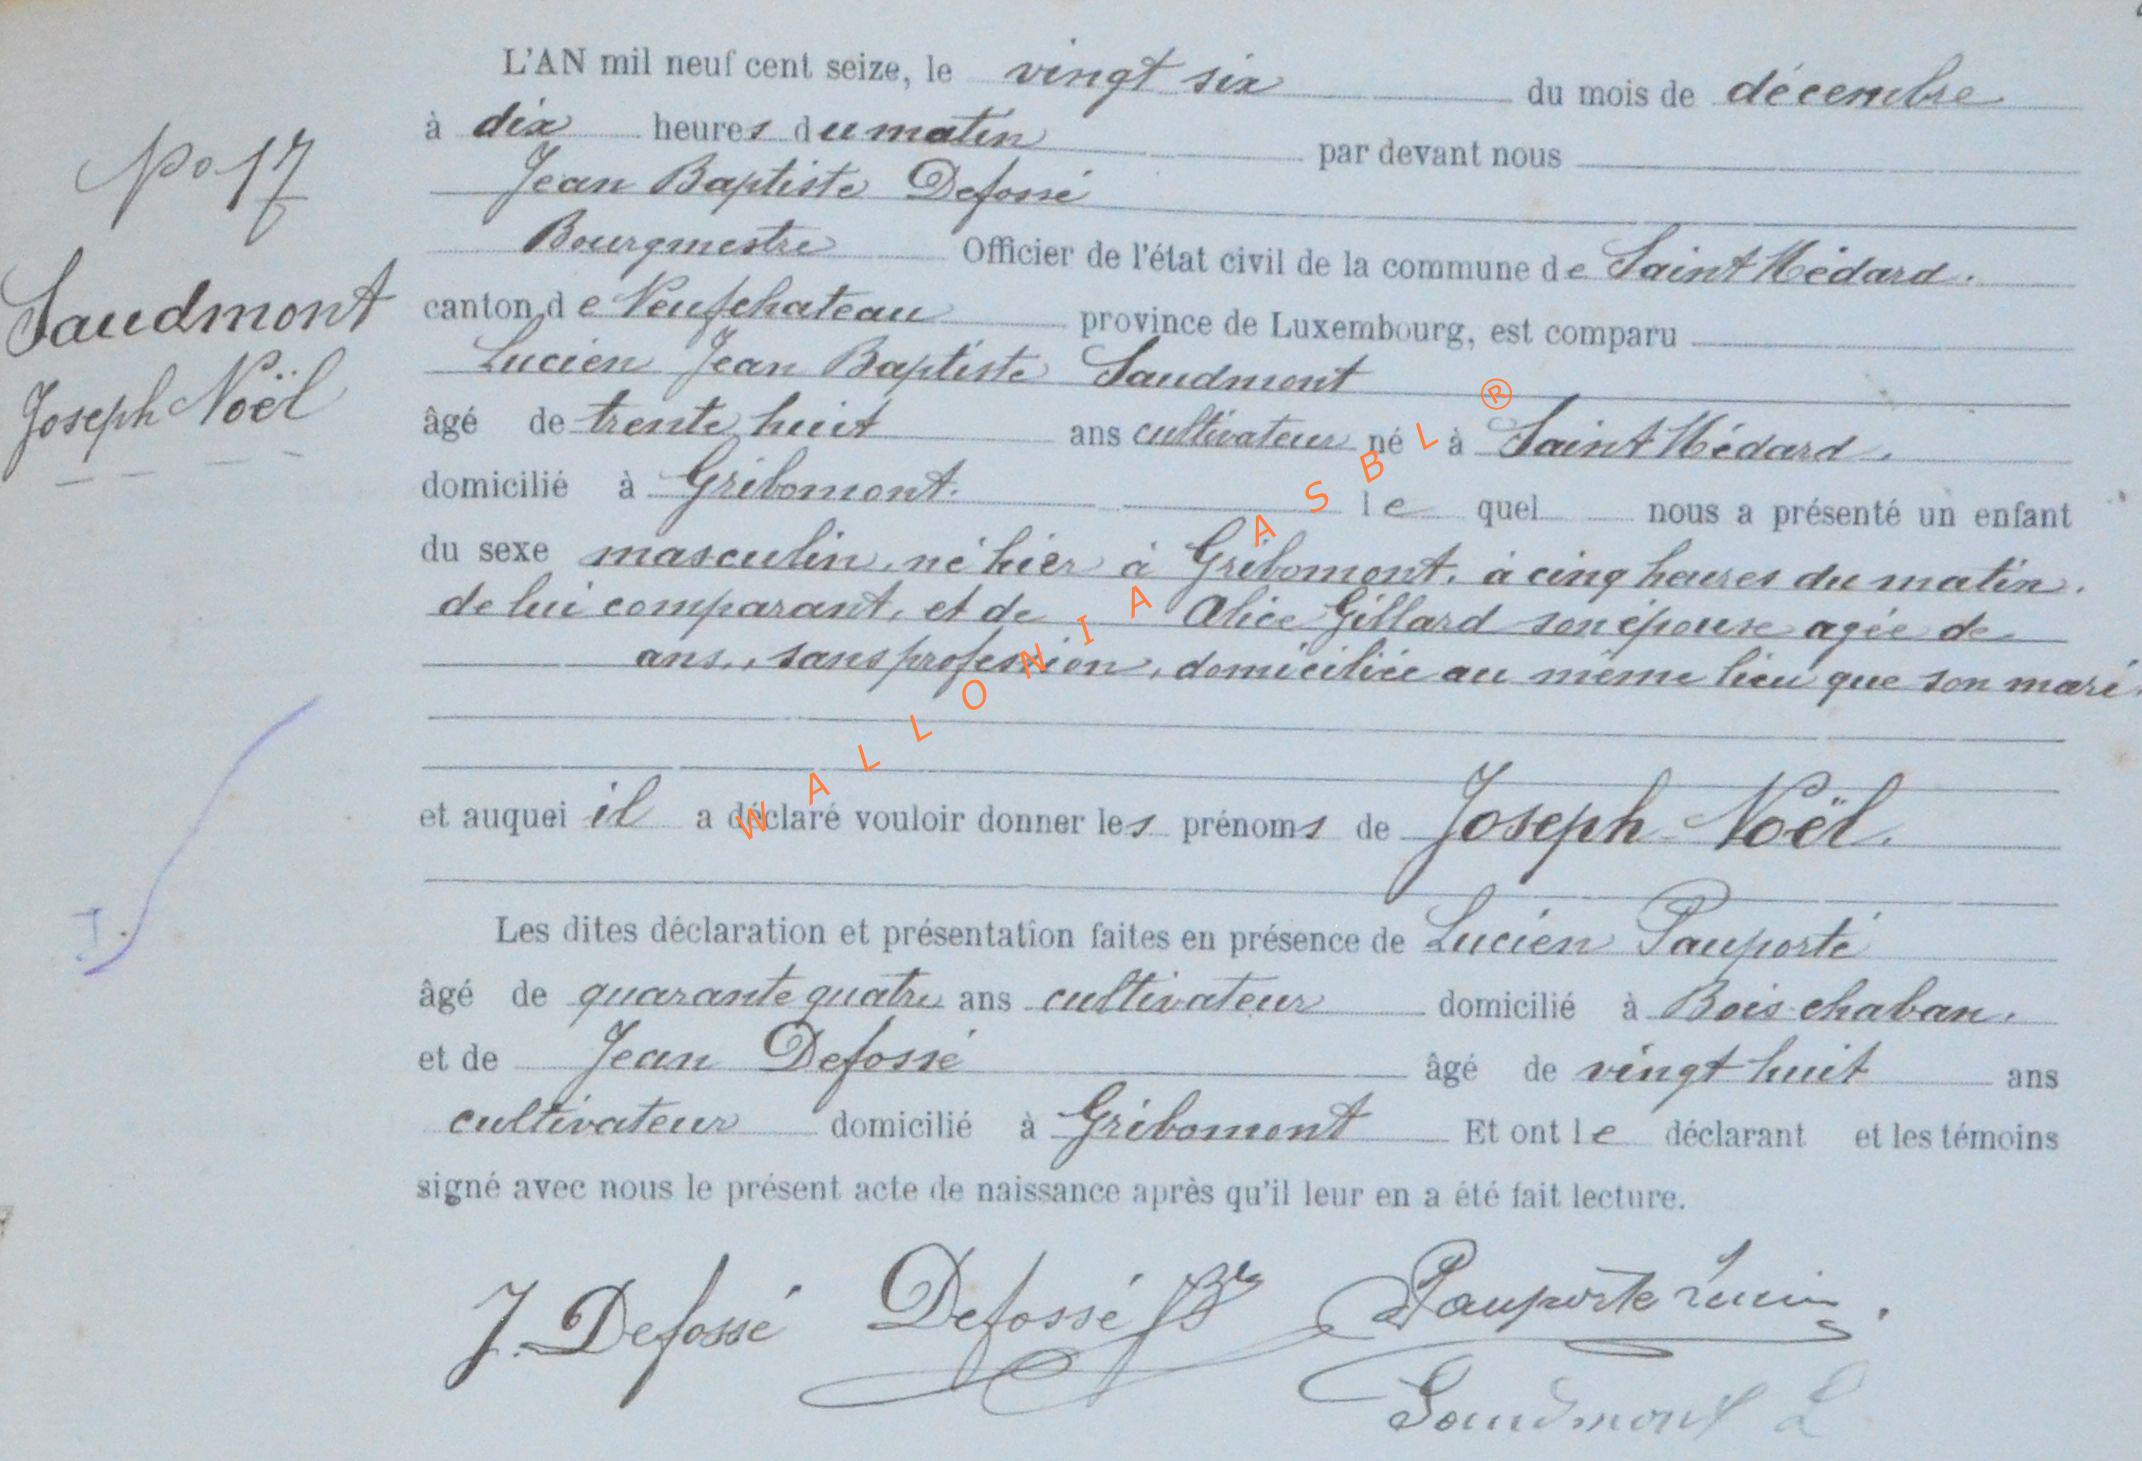 L'AN mil neuf cent seize, le vingt six du mois de décembre
à dix heures du matin par devant nous
Jean Baptiste Defossé
Bourgmestre Officier de l'état civil de la commune de Saint Médard.
canton de Neufchateau province de Luxembourg, est comparu
Lucien Jean Baptiste Saudmont
âgé de trente huit ans cultivateur né à Saint Médard.
domicilié à Gribomont. le quel nous a présenté un enfant
du sexe masculin, né hier à Gribomont, à cinq heures du matin.
de lui comparant, et de Alice Gillard son épouse agée de
ans, sans profession, domiciliée au même lieu que son mari.
et auquel il a déclaré vouloir donner les prénoms de Joseph Noël.
Les dites déclaration et présentation faites en présence de Lucien Pauporté
âgé de quarante quatre ans cultivateur domicilié à Bois-chaban.
et de Jean Defossé âgé de vingt huit ans
cultivateur domicilié à Gribomont Et ont le déclarant et les témoins
signé avec nous le présent acte de naissance après qu'il leur en a été fait lecture.
J. Defossé Defossé JB Pauporté Lucien.
Saudmont L
No 17
Saudmont
Joseph Noël
WALLONIA ASBL ®